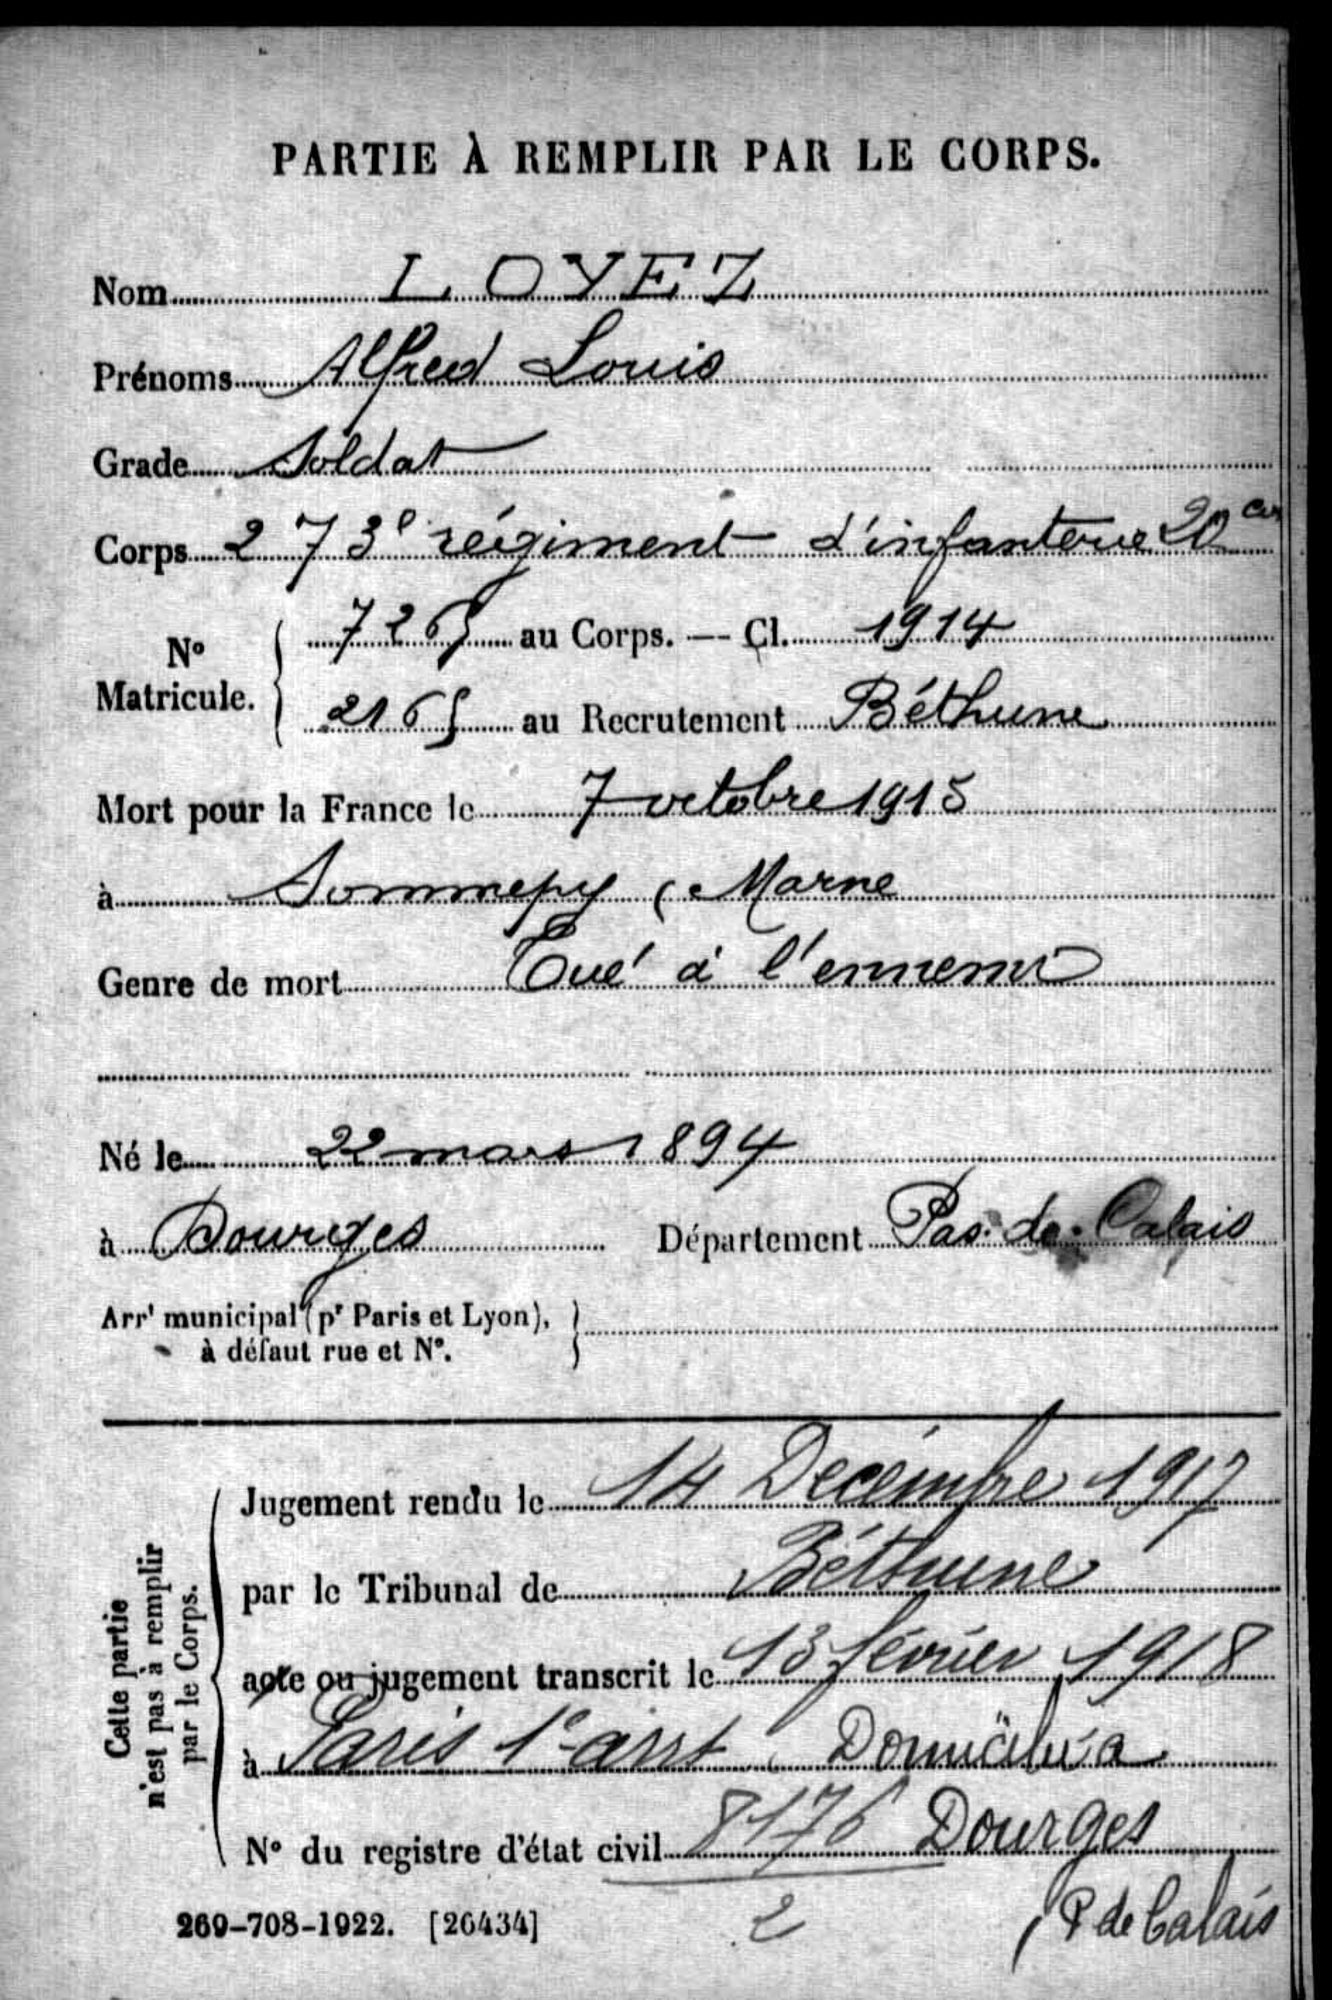 PARTIE À REMPLIR PAR LE CORPS.
Nom LOYEZ
Prénoms Alfred Louis
Grade Soldat
Corps 273e régiment d'infanterie 20 Cie
No Matricule. 7265 au Corps. — Cl. 1914
2165 au Recrutement Béthune
Mort pour la France le 7 octobre 1915
à Sommepy (Marne
Genre de mort Tué à l'ennemi
Né le 22 mars 1894
à Dourges Département Pas-de-Calais
Arrt municipal (pr Paris et Lyon),
à défaut rue et No.
Cette partie
n'est pas à remplir
par le Corps.
Jugement rendu le 14 Décembre 1917
par le Tribunal de Béthune
acte ou jugement transcrit le 13 février 1918
à Paris 1e arrt Domicilié à
No du registre d'état civil 8176 Dourges
2 P de Calais
269-708-1922. [26434]